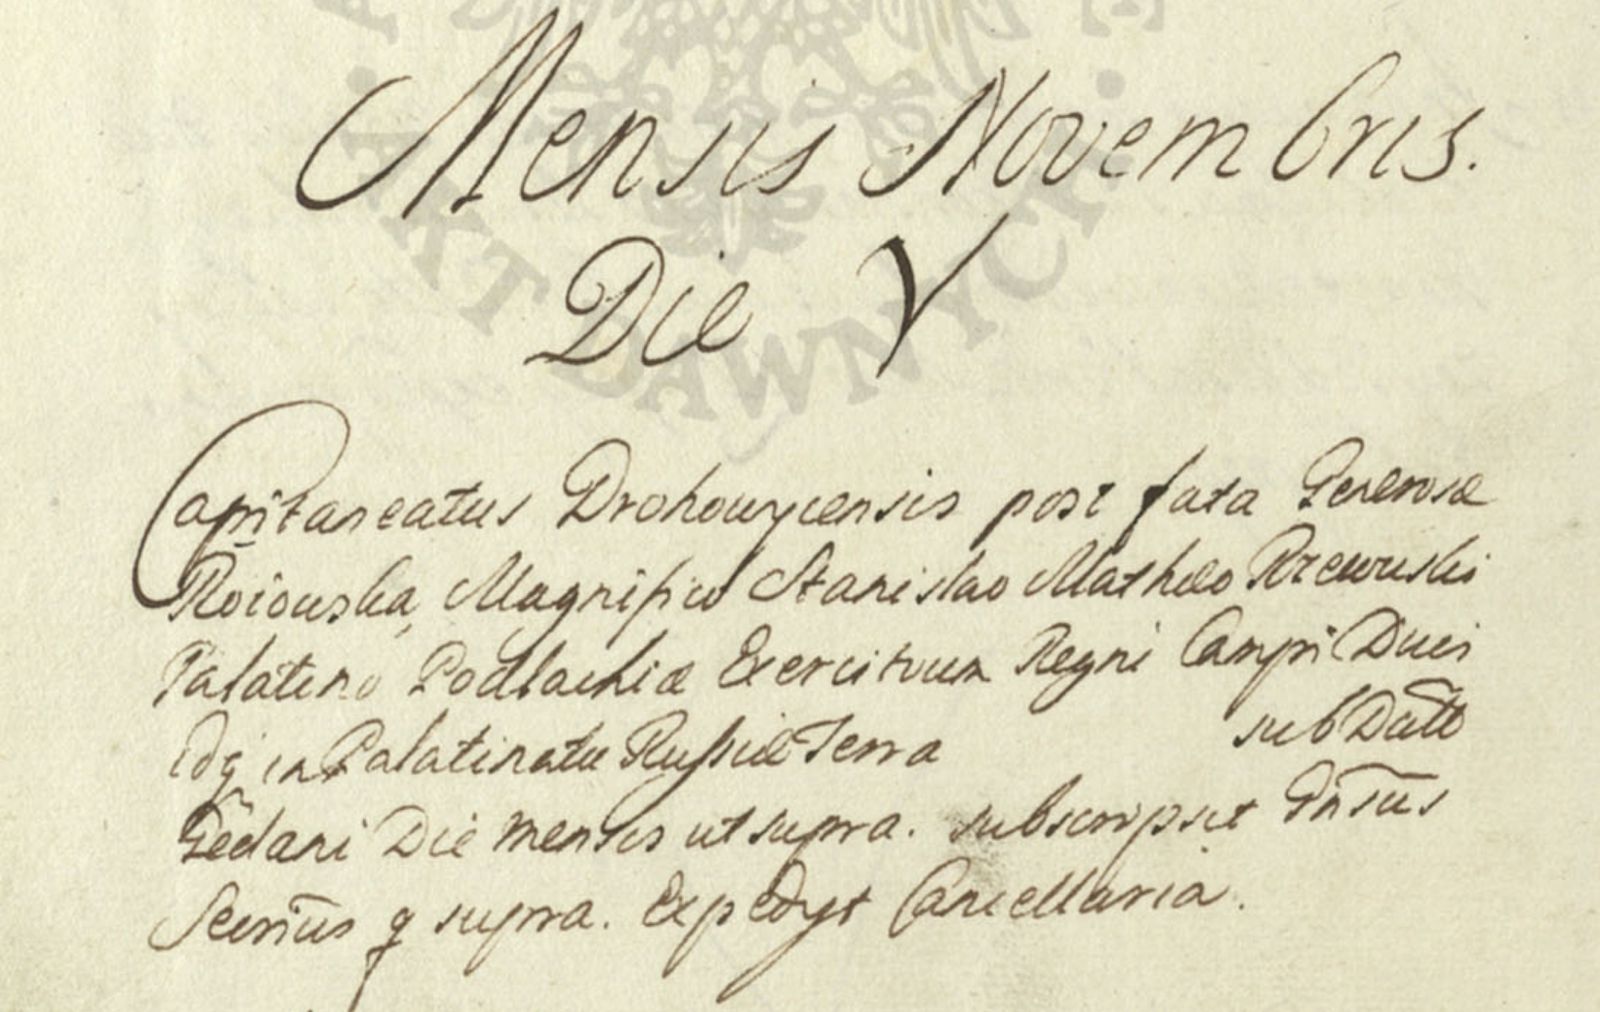 Mensis Novembris.
Die V
Capitaneatus Drohowycensis post fata Generosæ
Roiowska, Magnifico Stanislao Mathæo Rzewuski
Palatino Podlachiæ Exercituum Regni Campi Duci
idq in Palatinatu Russiæ Terra sub Datt
Gedani Die mensis ut supra. subscripsit Gnsus
Secrius q supra. Expedyt Cancellaria.
AKT DAWNYCH